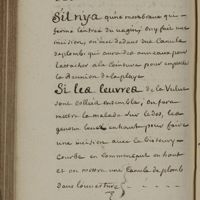 Sil n'iya qu'une membrane qui
ferme l'entrée du vagin, on y fait une
incision, on met dedans une Canula
de plomb qui aura des anneaux pour
l'attacher a la Ceinture pour empecher
la Reunion de la playe
Si les leuvres de la Vulve
sont collées ensembles, on fera
mettre la malade sur le dos, les
genoux leués en haut, pour faire
une incision avec le bistoury
Courbe en Commençant en haut
et on mettra une Canule de plomb
dans l'ouverture